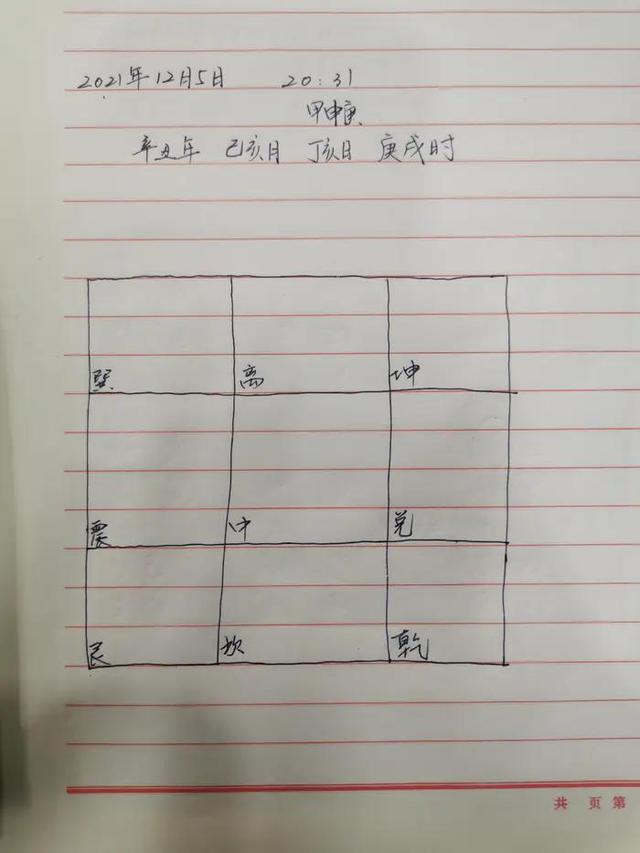 2021年12月5日 20:31
甲申庚
辛丑年 己亥月 丁亥日 庚戌时
巽 离 坤
震 中 兑
艮 坎 乾
共 页 第